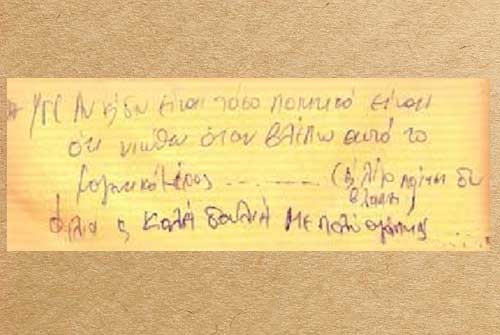 Υ/Γ Αν κι δεν είναι τόσο ποιητικό είναι
ότι νιώθω όταν βλέπω αυτό το
μαγευτικό μέρος ... (& λίγο ποίηση δν
βλάπτει)
Φιλιά & καλή δουλειά Με πολύ αγάπη ...